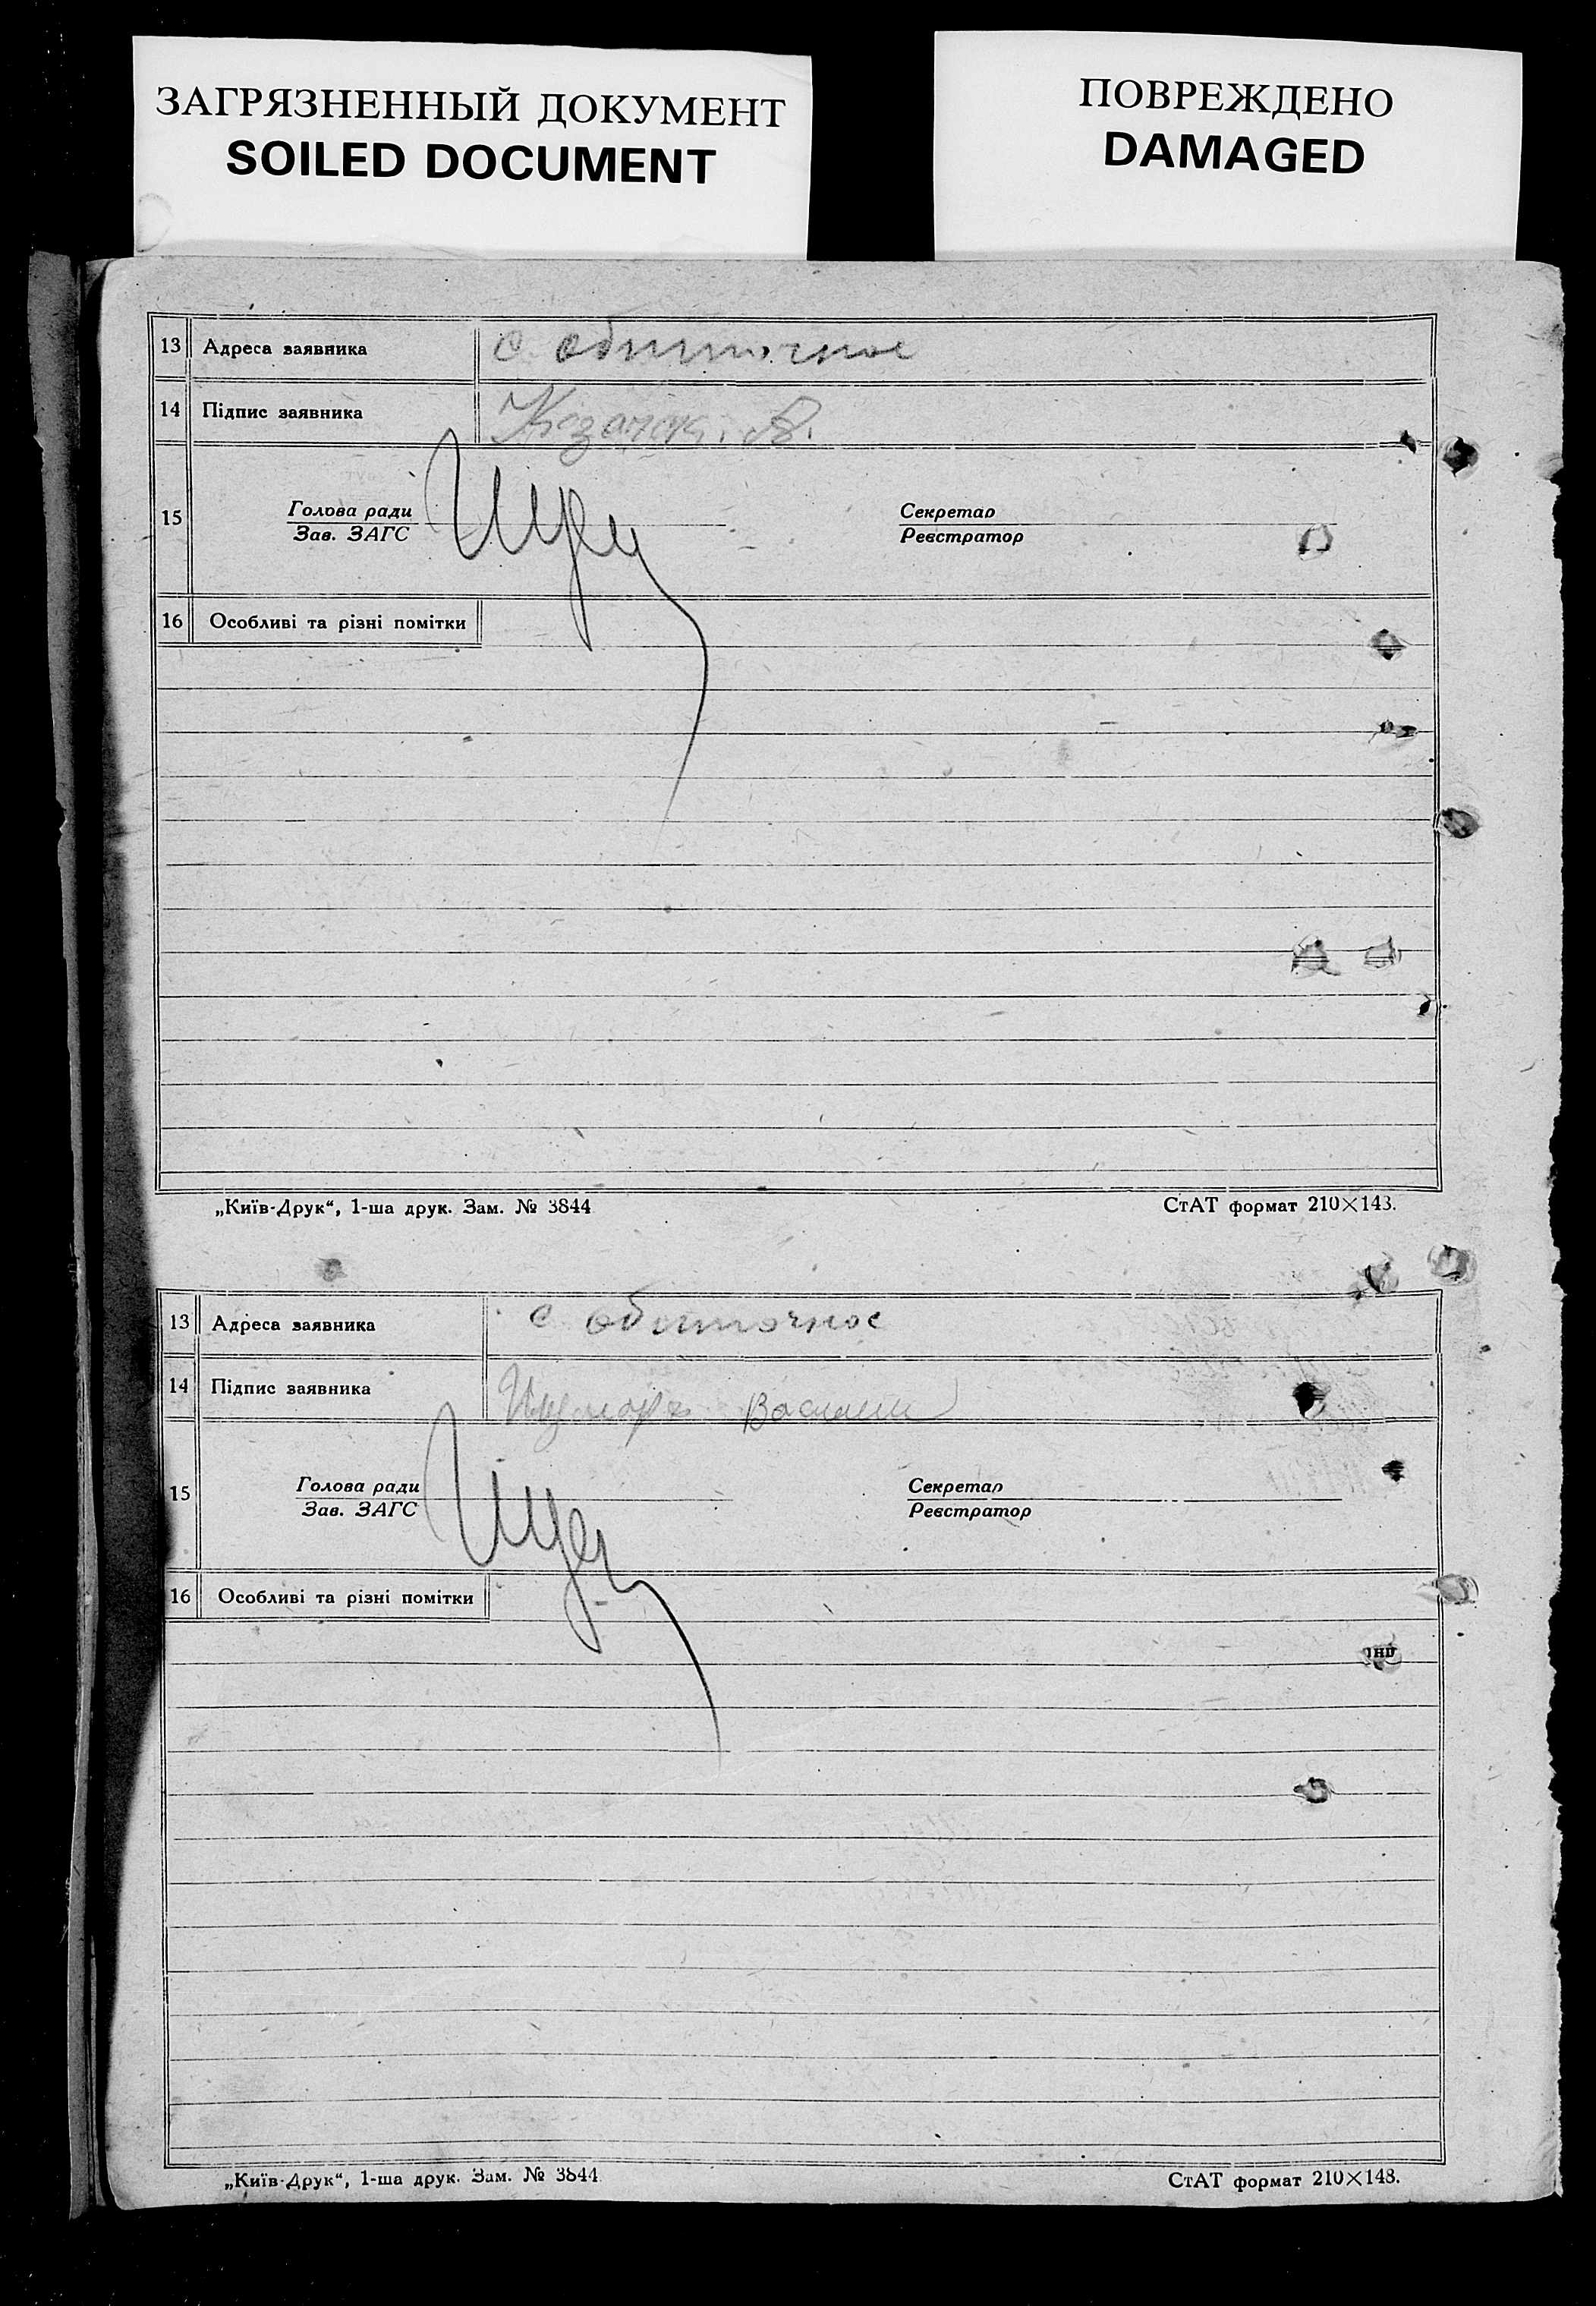 ЗАГРЯЗНЕННЫЙ ДОКУМЕНТ
SOILED DOCUMENT
ПОВРЕЖДЕНО
DAMAGED
13 Адреса заявника с Обиточное
14 Підпис заявника
15 Голова ради Секретар
Зав. ЗАГС Реєстратор
16 Особливі та різні помітки
„Київ-Друк“, 1-ша друк. Зам. № 3844 СтАТ формат 210×143.
13 Адреса заявника с Обиточное
14 Підпис заявника
15 Голова ради Секретар
Зав. ЗАГС Реєстратор
16 Особливі та різні помітки
„Київ-Друк“, 1-ша друк. Зам. № 3844 СтАТ формат 210×148.